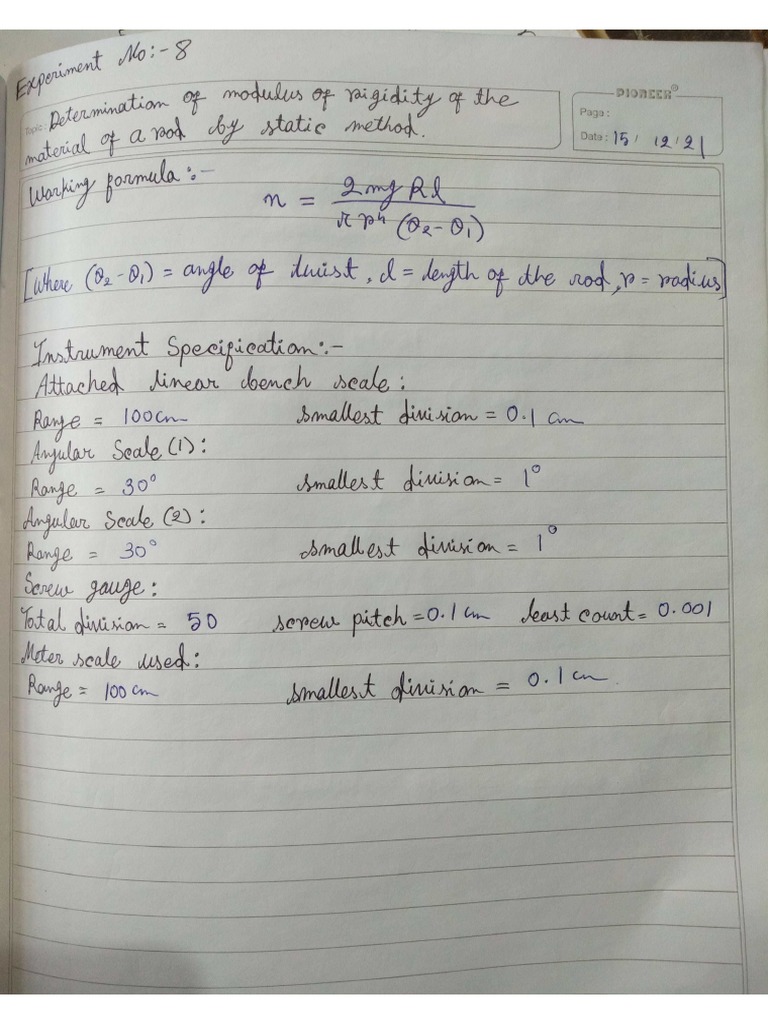 Experiment No:- 8
PIONEER®
Topic: Determination of modulus of rigidity of the
material of a rod by static method.
Page:
Date: 15/ 12/21
Working formula:-
n = 2mg Rl / π r⁴ (θ₂-θ₁)
[Where (θ₂-θ₁) = angle of twist, l = length of the rod, r = radius]
Instrument Specification:-
Attached linear bench scale:
Range = 100cm smallest division = 0.1 cm
Angular Scale (1):
Range = 30° smallest division = 1°
Angular Scale (2):
Range = 30° smallest division = 1°
Screw gauge:
Total division = 50 screw pitch = 0.1 cm least count = 0.001
Meter scale used:
Range = 100 cm smallest division = 0.1 cm.